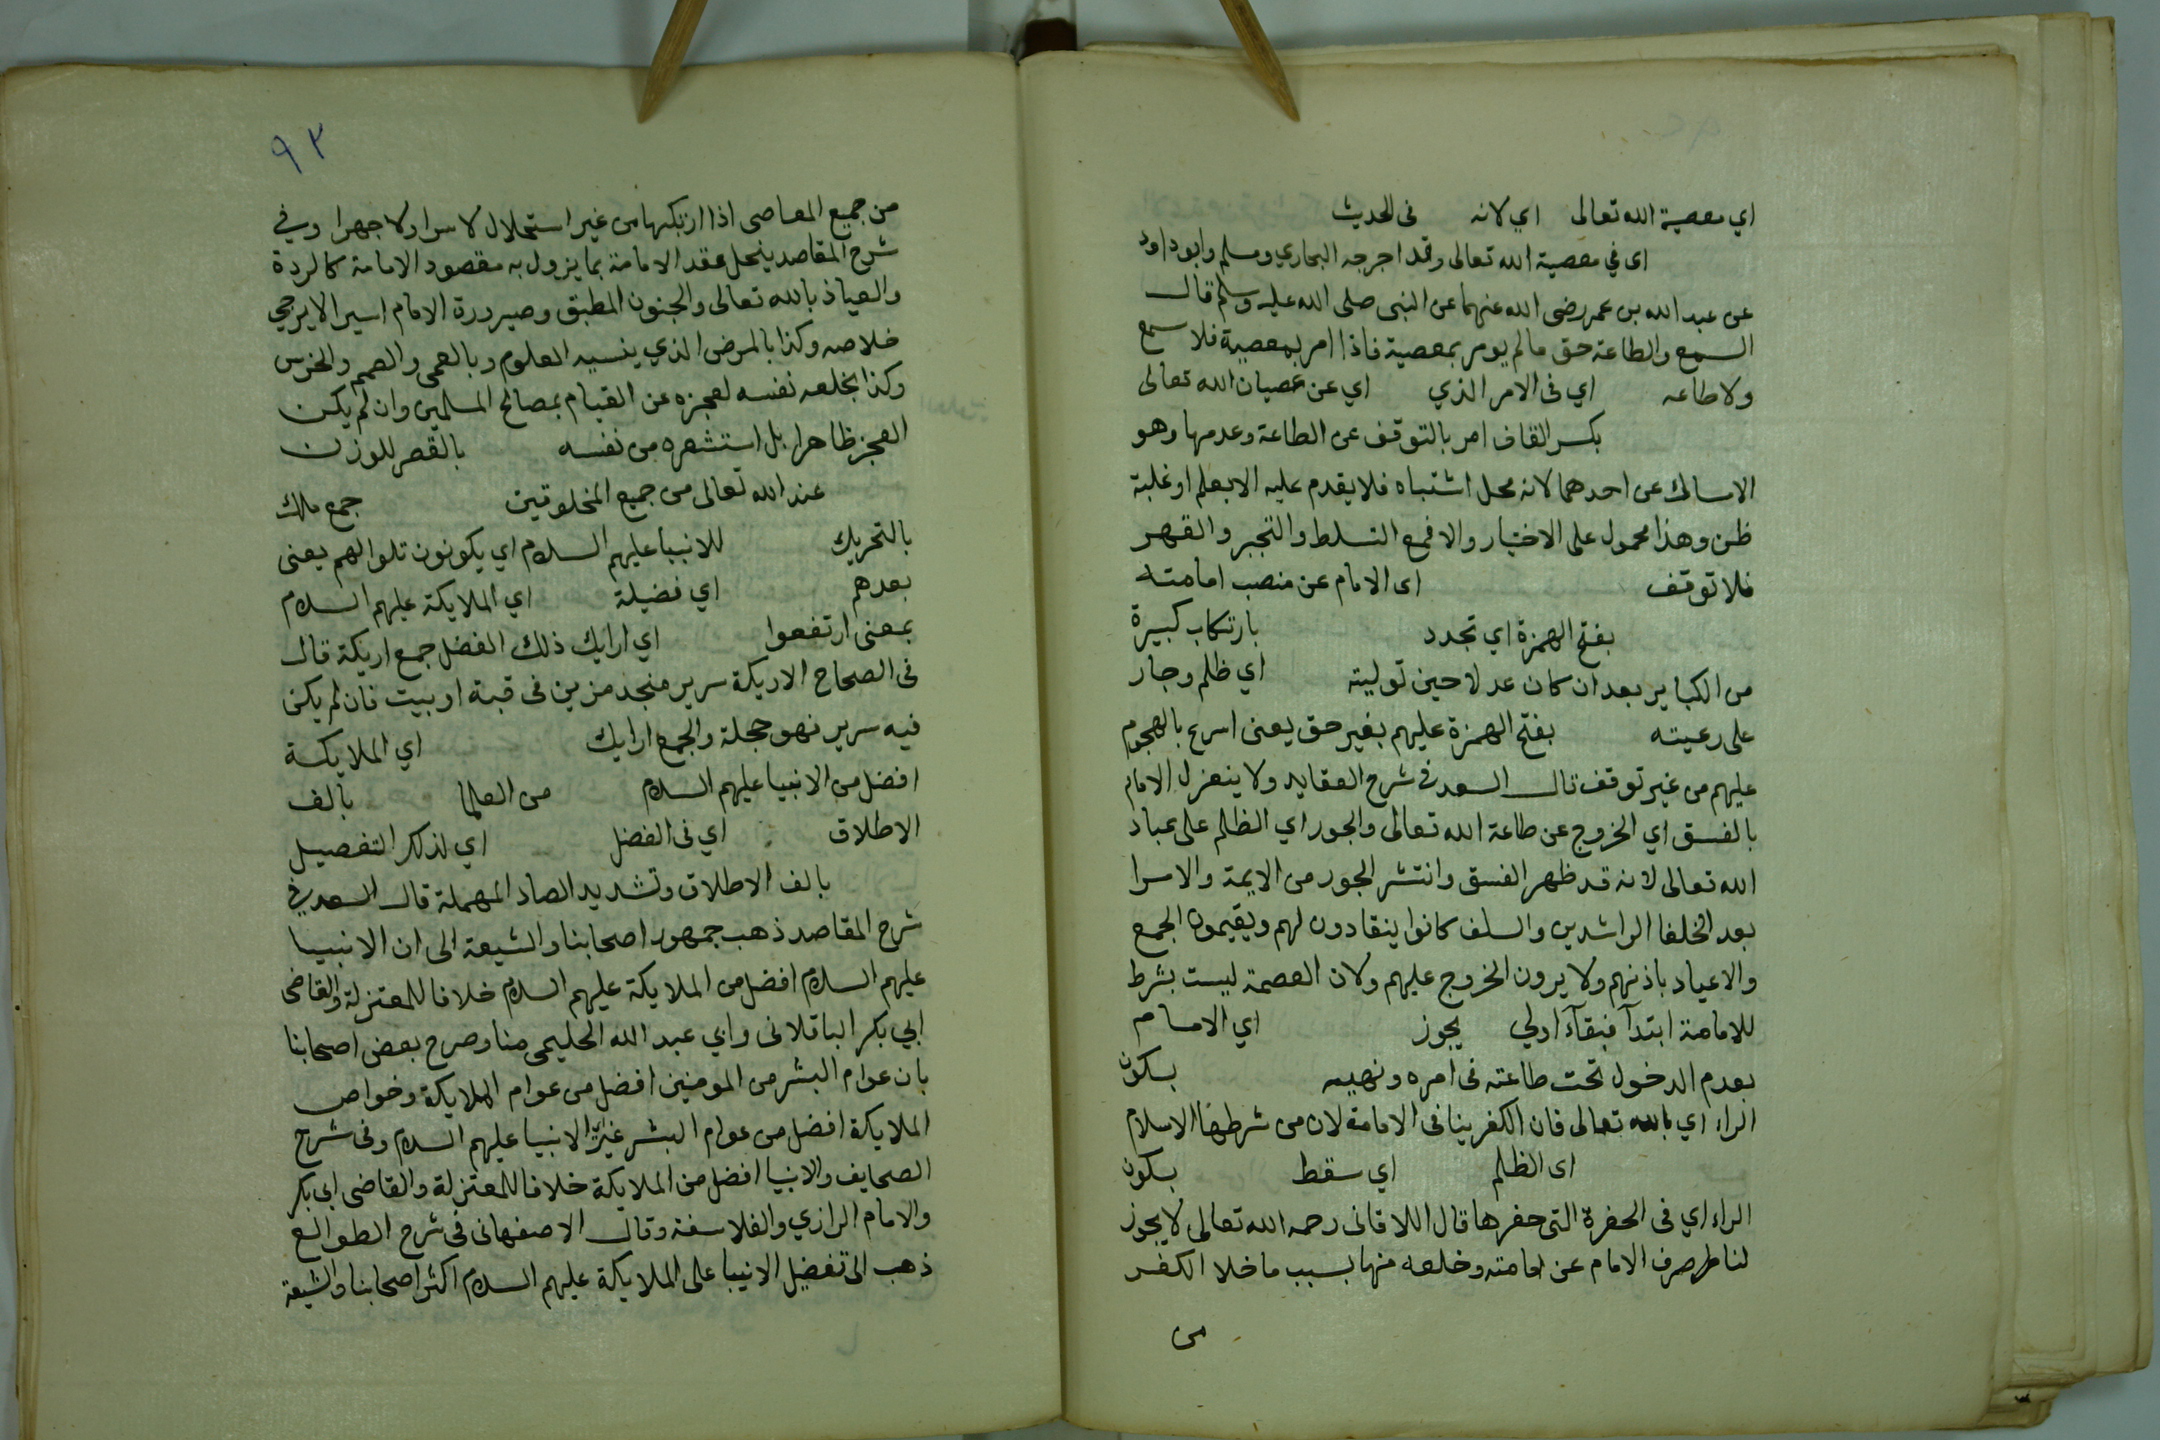 اي معصية الله تعالى اي لانه في الحديث
اى في معصية الله تعالى وقد اخرجه البخاري ومسلم وابوداود
عن عبد الله بن عمر رضى الله عنهما عن النبى صلى الله عليه وسلم قال
السمع والطاعة حق مالم يومر بمعصية فاذا امر بمعصية فلا سمع
ولا طاعه اي فى الامر الذي اي عن عصيان الله تعالى
بكسر القاف امر بالتوقف عن الطاعة وعدمها وهو
الامساك عن احدهما لانه محل اشتباه فلا يقدم عليه الا بعلم او غلبة
ظن وهذا محمول على الاختيار والا فمع التسلط والتجبر والقهر
فلا توقف اى الامام عن منصب امامته
بفتح الهمزة اي تجدد بارتكاب كبيرة
من الكباير بعد ان كان عدلا حين توليته اي ظلم وجار
على رعيته بفتح الهمزة عليهم بغير حق يعنى اسرع بالهجوم
عليهم من غير توقف قال السعد في شرح العقايد ولا ينعزل الامام
بالفسق اي الخروج عن طاعة الله تعالى والجور اي الظلم على عباد
الله تعالى لانه قد ظهر الفسق وانتشر الجور من الايمة والامرا
بعد الخلفا الراشدين والسلف كانوا ينقادون لهم ويقيمون الجمع
والاعياد باذنهم ولا يرون الخروج عليهم ولان العصمة ليست بشرط
للامامة ابتدآ فبقآء اولي يجوز اي الامام
بعدم الدخول تحت طاعته فى امره ونهيه بسكون
الراء اي بالله تعالى فان الكفر ينافى الامامة لان من شرطها الاسلام
اى الظلم اي سقط بسكون
الراء اي فى الحفرة التى حفرها قال اللاقانى رحمه الله تعالى لا يجوز
لنا صرف الامام عن امامته وخلعه منها بسبب ما خلا الكفر
من
٩٢
من جميع المعاصى اذا ارتكبها من غير استحلال لا سرا ولا جهرا وفي
شرح المقاصد ينحل عقد الامامة بما يزول به مقصود الامامة كالردة
والعياذ بالله تعالى والجنون المطبق وصيرورة الامام اسيرا لا يرجى
خلاصه وكذا بالمرض الذي ينسيه العلوم وبالعمى والصمم والخرس
وكذا بخلعه نفسه لعجزه عن القيام بمصالح المسلمين وان لم يكن
العجز ظاهرا بل استشعره من نفسه بالقصر للوزن
عند الله تعالى من جميع المخلوقين جمع ملك
بالتحريك للانبيا عليهم السلام اي يكونون تلوا لهم يعنى
بعدهم اي فضيلة اي الملايكة عليهم السلام
بمعنى ارتفعوا اي ارايك ذلك الفضل جمع اريكة قال
فى الصحاح الاريكة سرير منجد مزين فى قبة او بيت فان لم يكن
فيه سرير فهو حجلة والجمع ارايك اي الملايكة
افضل من الانبيا عليهم السلام من العلما بالف
الاطلاق اي فى الفضل اي لذكر التفصيل
بالف الاطلاق وتشديد الصاد المهملة قال السعد في
شرح المقاصد ذهب جمهور اصحابنا والشيعة الى ان الانبيا
عليهم السلام افضل من الملايكة عليهم السلام خلافا للمعتزلة والقاضى
ابي بكر الباقلانى وابي عبد الله الحليمى منا وصرح بعض اصحابنا
بان عوام البشر من المومنين افضل من عوام الملايكة وخواص
الملايكة افضل من عوام البشر غير الانبيا عليهم السلام وفى شرح
الصحايف والانبيا افضل من الملايكة خلافا للمعتزلة والقاضى ابي بكر
والامام الرازي والفلاسفة وقال الاصفهانى فى شرح الطوالع
ذهب الى تفضيل الانبيا على الملايكة عليهم السلام اكثر اصحابنا والشيعة